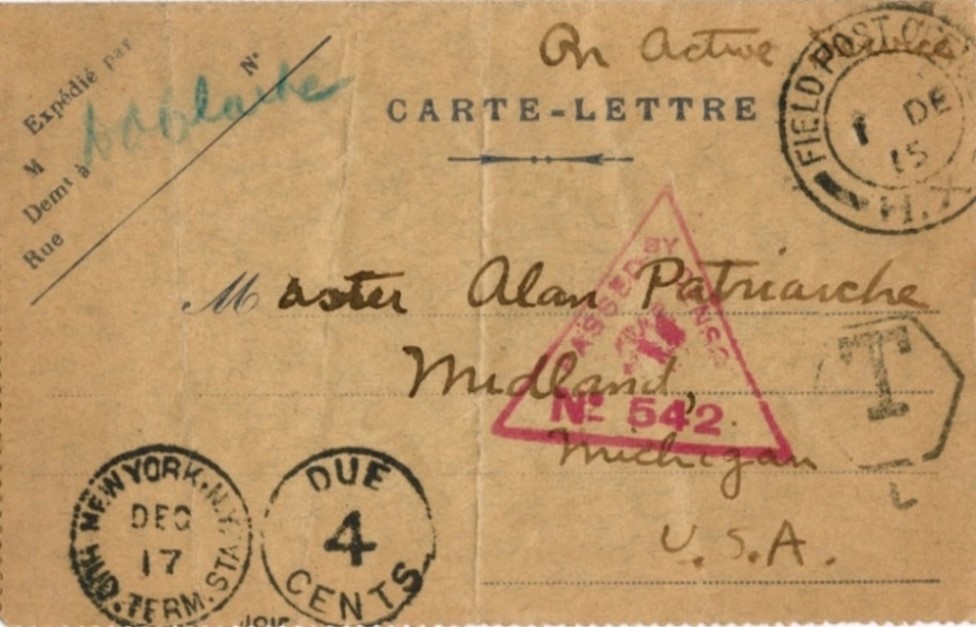 On Active Service
CARTE-LETTRE
Expédié par
M
Demt à
Rue
N°
FIELD POST OFFICE
1 DE
15
H.X
Master Alan Patriarche
Midland,
Michigan
U.S.A.
PASSED BY CENSOR
No 542
T
L
NEW YORK, N.Y.
DEC
17
HUD. TERM. STA.
DUE
4
CENTS